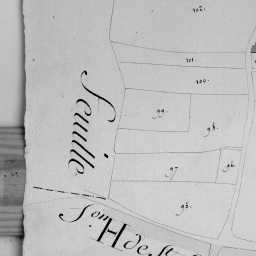 102.
101.
100.
99.
98.
97.
96.
95.
Feuille
S.om H de St